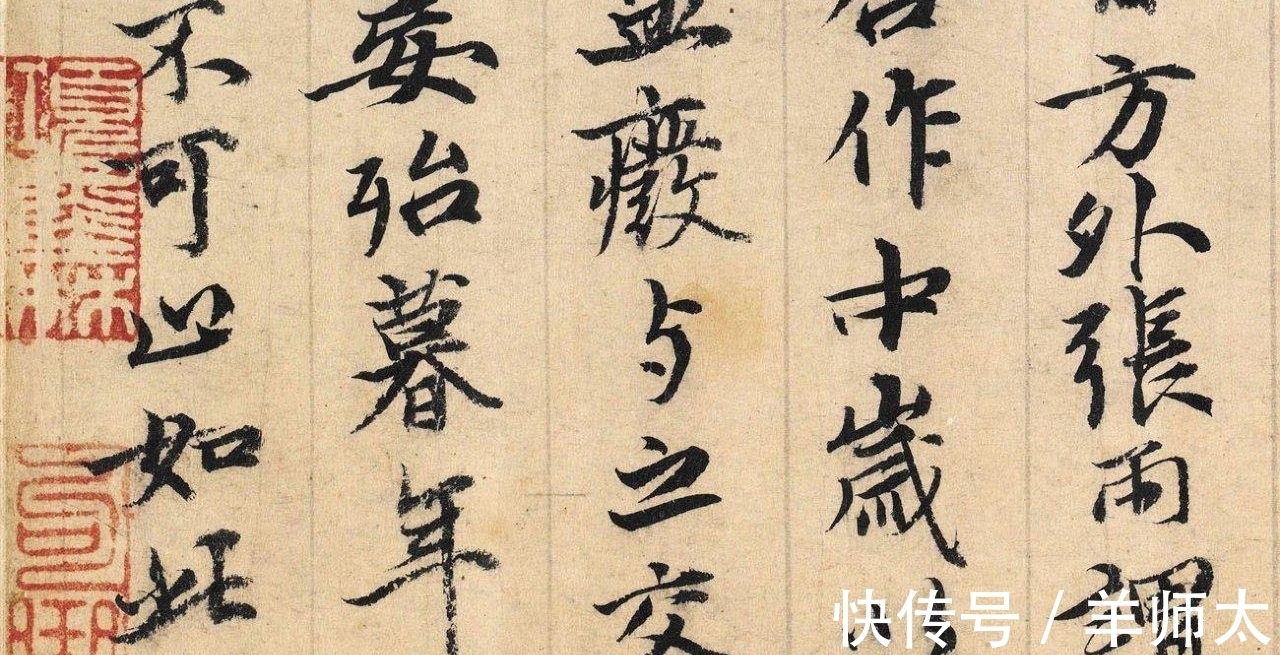 方外張雨
作中歲
癈与之交
殆暮年
不可 如此
快传号 / 羊师太